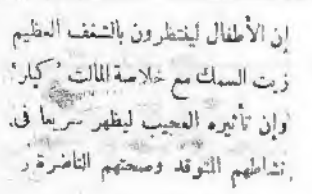 إن الأطفال لينتظرون بالشغف العظيم
زيت السمك مع خلاصة المالت "كبلر"
وإن تأثيره العجيب ليظهر سريعاً في
نشاطهم المتوقد وصحتهم الناضرة